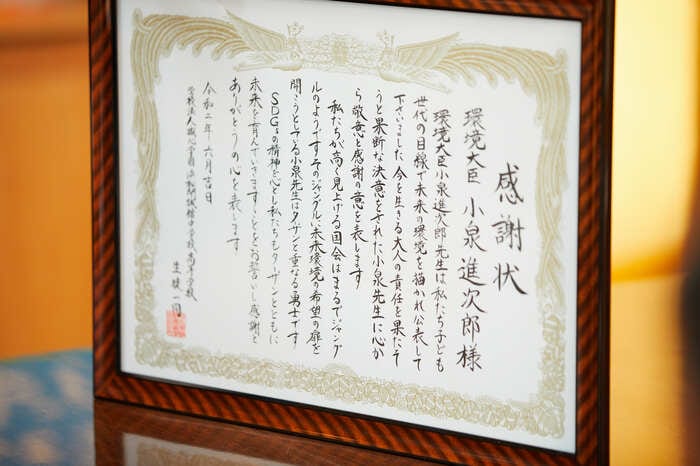 感謝状
環境大臣 小泉進次郎様
環境大臣小泉進次郎先生は私たち子ども
世代の目線で未来の環境を描かれ公表して
下さいました 今を生きる大人の責任を果たそ
うと果断な決意をされた小泉先生に心か
ら敬意と感謝の意を表します
私たちが高く見上げる国会はまるでジャング
ルのようですそのジャングルに未来環境の希望の扉を
開こうとする小泉先生はターザンと重なる勇士です
SDGsの精神を心とし私たちもターザンとともに
未来を育んでいきますことをお誓いし感謝と
ありがとうの心を表します
令和二年六月吉日
学校法人誠心学園浜松開誠館中学校高等学校
生徒一同